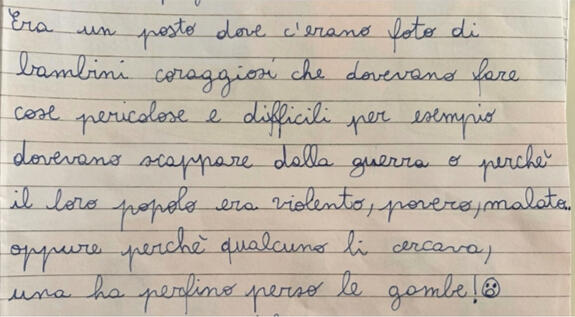 Era un posto dove c'erano foto di
bambini coraggiosi che dovevano fare
cose pericolose e difficili per esempio
dovevano scappare dalla guerra o perchè
il loro popolo era violento, povero, malato..
oppure perchè qualcuno li cercava,
una ha perfino perso le gambe!☹